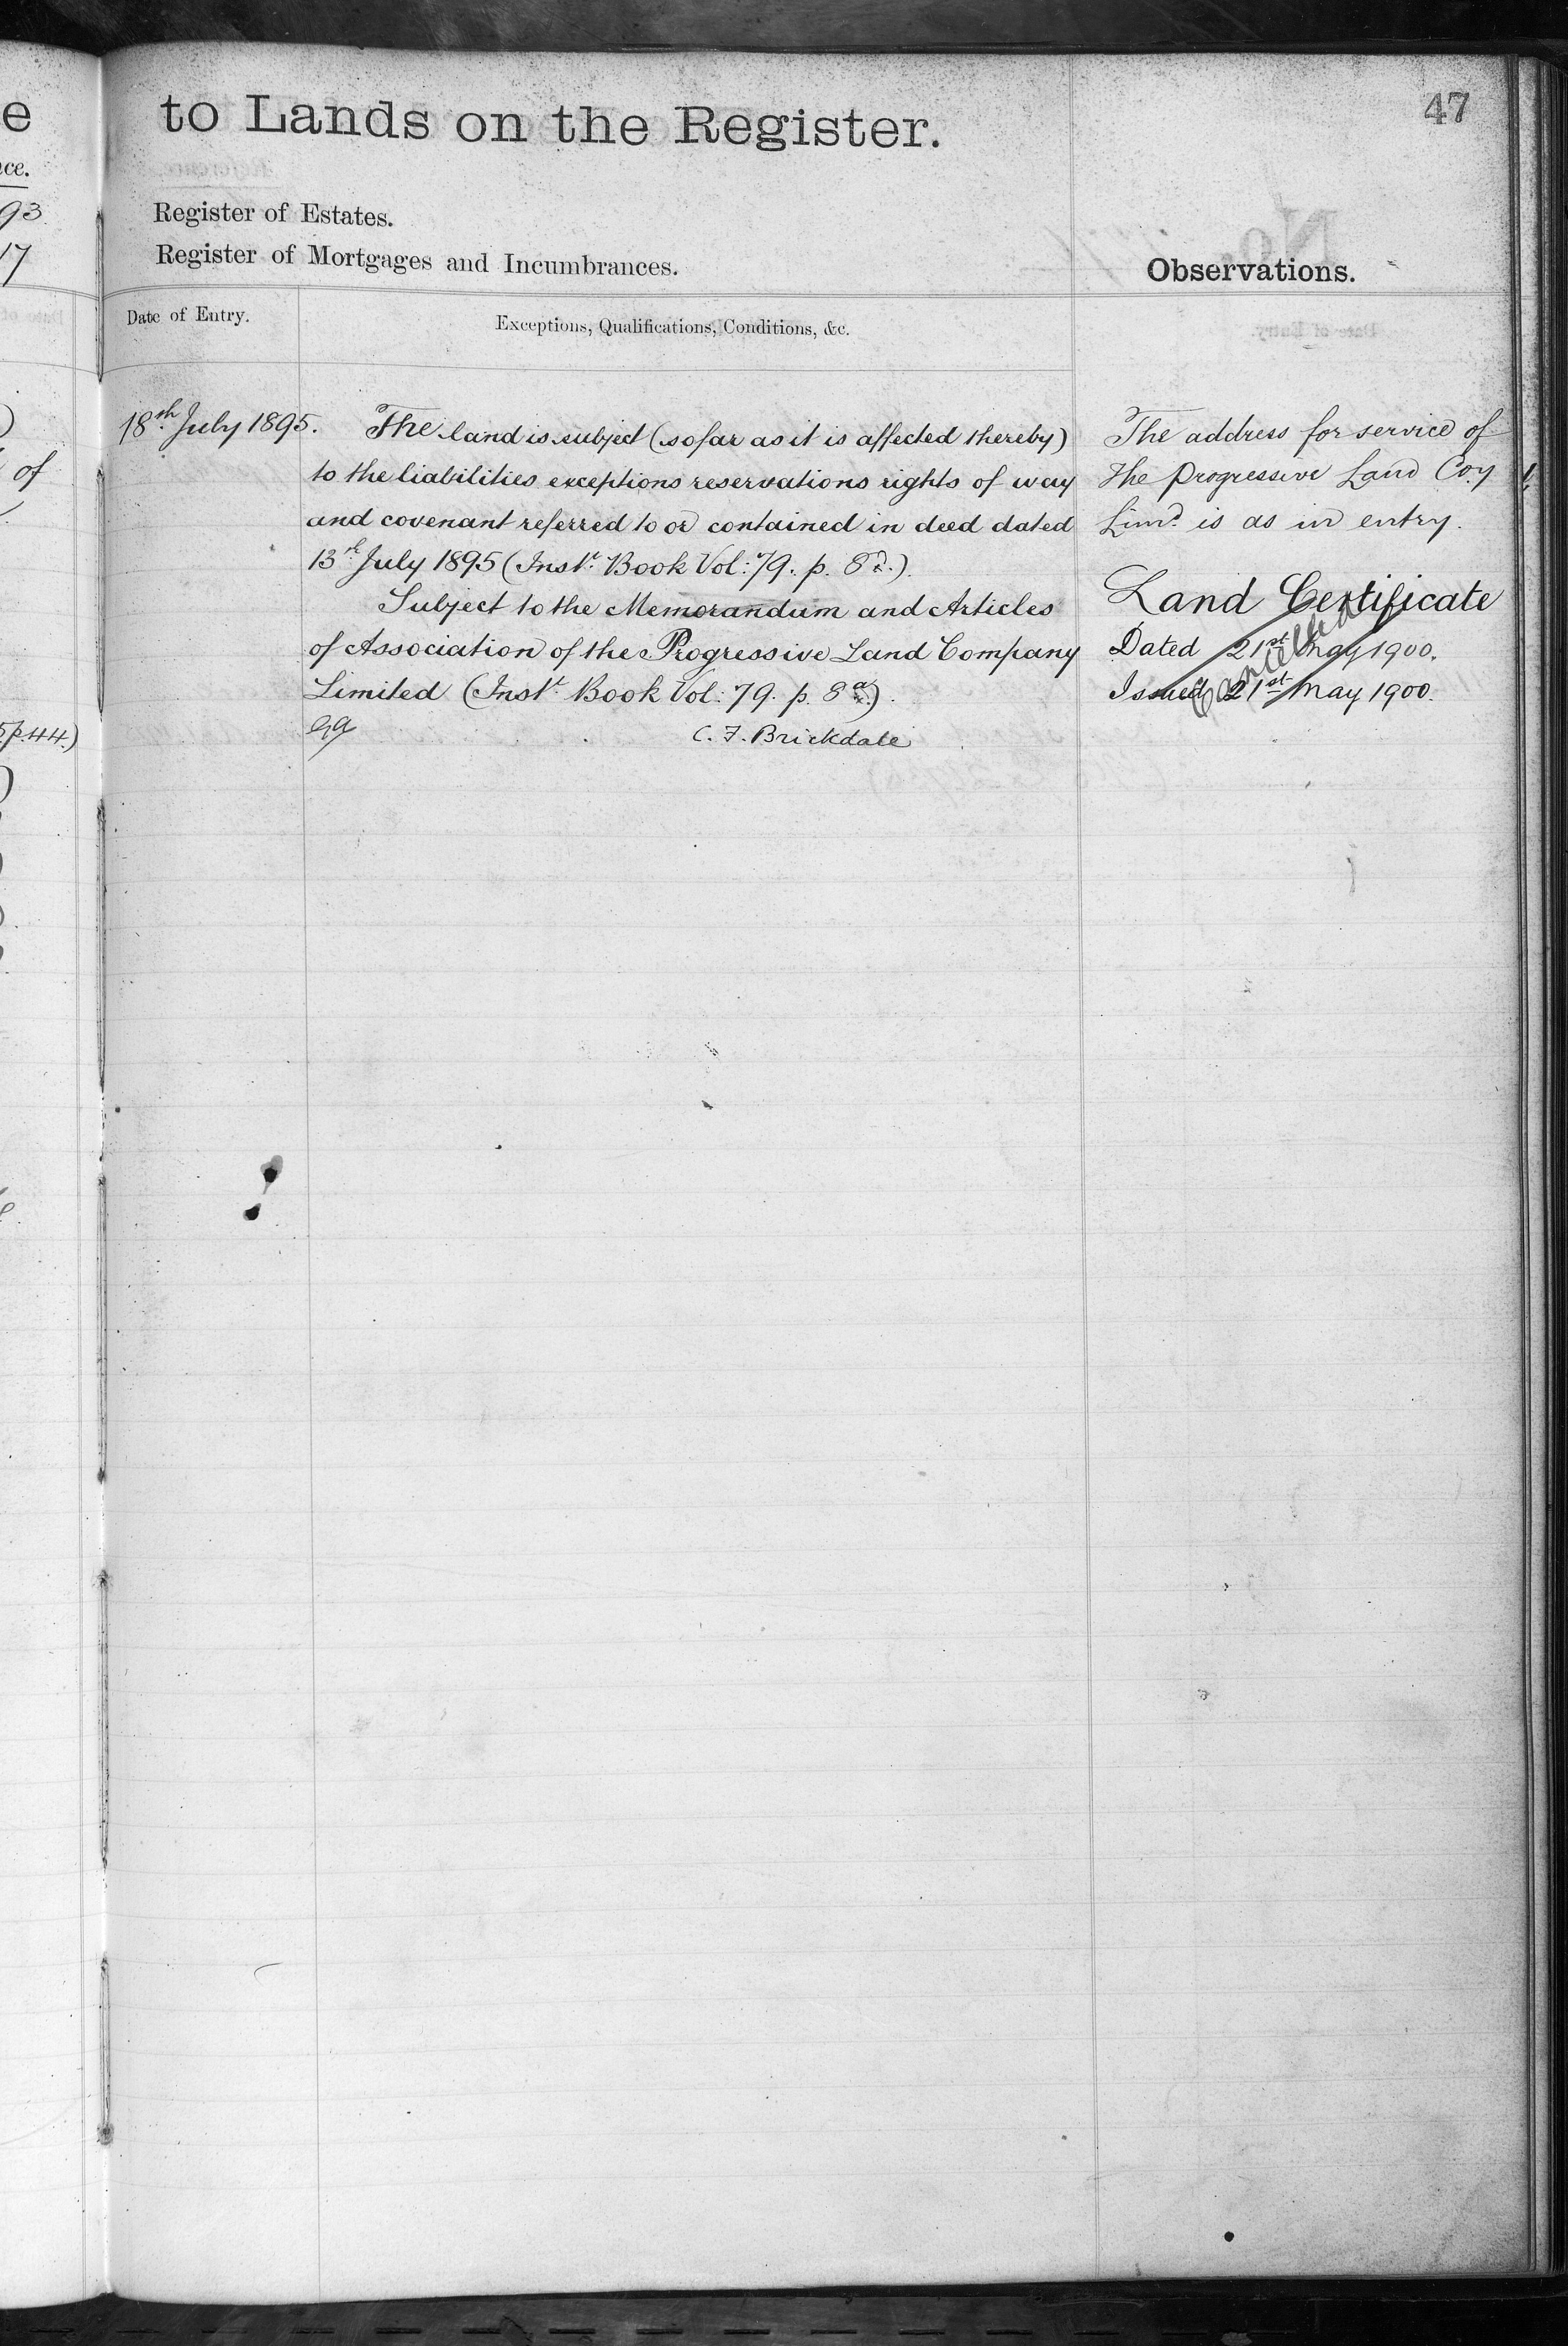 e
ce.
93
17
of
5p.44.)
to Lands on the Register.
47
Register of Estates.
Register of Mortgages and Incumbrances.
Observations.
Date of Entry.
Exceptions, Qualifications, Conditions, &c.
18th July 1895.
The land is subject (so far as it is affected thereby)
to the liabilities exceptions reservations rights of way
and covenant referred to or contained in deed dated
13th July 1895 (Inst. Book Vol: 79. p. 8
Subject to the Memorandum and Articles
of Association of the Progressive Land Company
Limited (Inst. Book Vol: 79. p. 8
C. F. Brickdale
The address for service of
the Progressive Land Coy
Limd. is as in entry.
Land Certificate
Dated 21st May 1900.
Issued 21st May 1900.
Cancelled